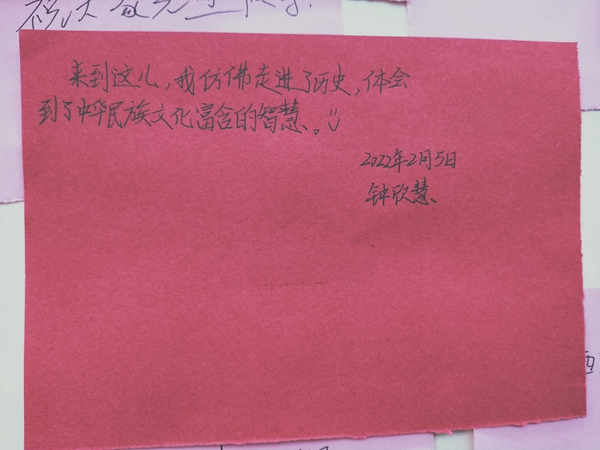 来到这儿,我仿佛走进了历史,体会
到了中华民族文化富含的智慧。
2022年2月5日
钟欣慧